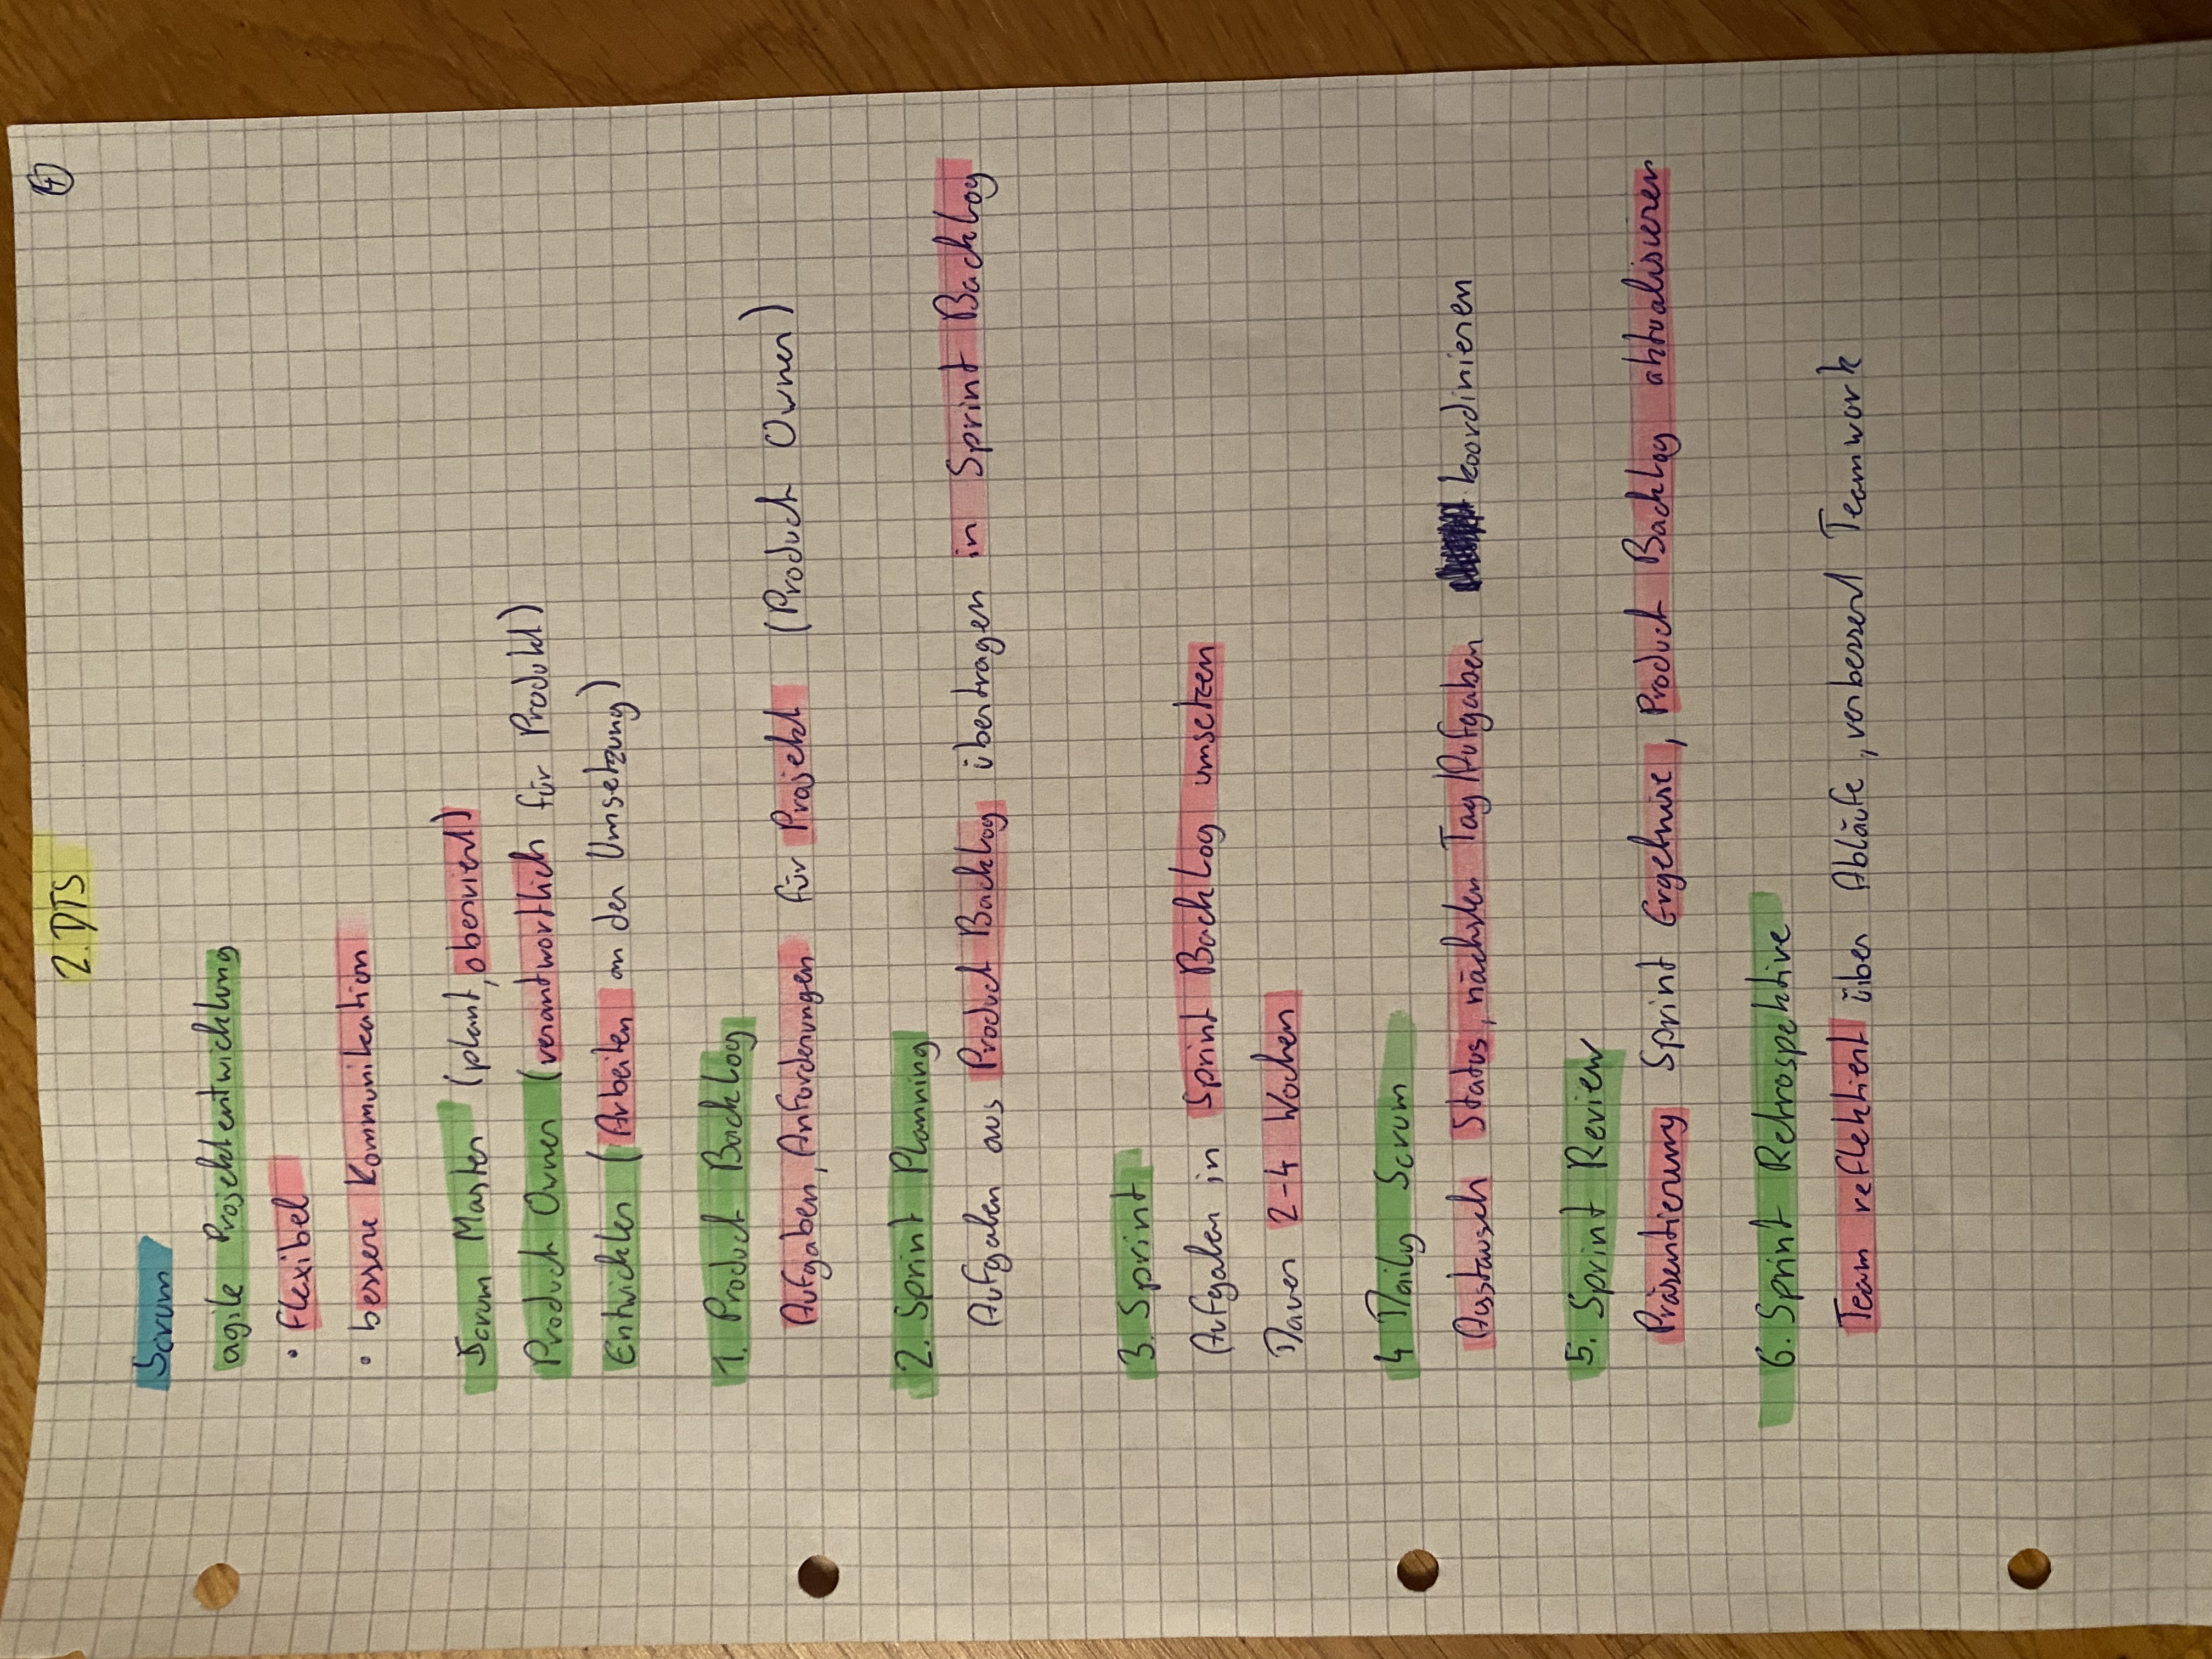 2. DTS
4
Scrum
agile Projektentwicklung
• flexibel
• bessere Kommunikation
Scrum Master (plant, oberviert)
Product Owner (verantwortlich für Produkt)
Entwickler (Arbeiten an der Umsetzung)
1. Product Backlog
Aufgaben, Anforderungen für Projekt (Product Owner)
2. Sprint Planning
Aufgaben aus Product Backlog übertragen in Sprint Backlog
3. Sprint
Aufgaben in Sprint Backlog umsetzen
Dauer 2-4 Wochen
4 Daily Scrum
Austausch Status, nächsten Tag/Aufgaben koordinieren
5. Sprint Review
Präsentierung Sprint Ergebnise, Product Backlog aktualisieren
6. Sprint Retrospektive
Team reflektiert über Abläufe, verbessert Teamwork